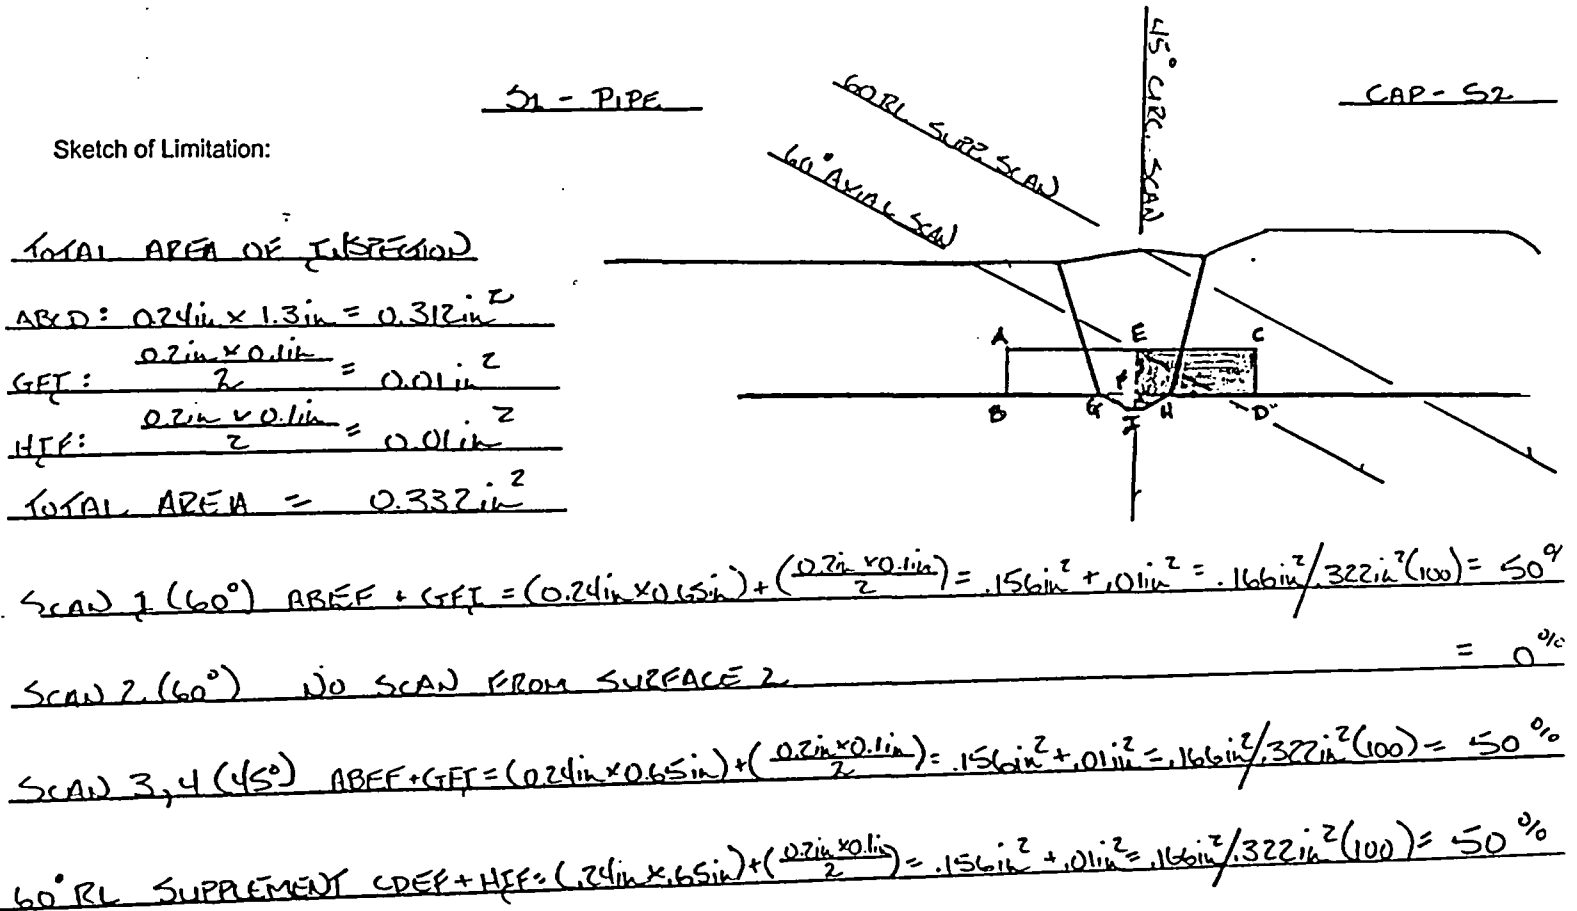 S1 - PIPE
CAP - S2
45° CIRC. SCAN
60 RL SUPP. SCAN
60° AXIAL SCAN
Sketch of Limitation:
TOTAL AREA OF INSPECTION
ABCD: 0.24in x 1.3in = 0.312in²
GFI: 0.2in x 0.1in / 2 = 0.01in²
HIF: 0.2in x 0.1in / 2 = 0.01in²
TOTAL AREA = 0.332in²
A E C
F
B G I H D
SCAN 1 (60°) ABEF + GFI = (0.24in x 0.65in) + (0.2in x 0.1in / 2) = .156in² + .01in² = .166in² / .322in² (100) = 50%
SCAN 2 (60°) NO SCAN FROM SURFACE 2 = 0%
SCAN 3, 4 (45°) ABEF + GFI = (0.24in x 0.65in) + (0.2in x 0.1in / 2) = .156in² + .01in² = .166in² / .322in² (100) = 50%
60° RL SUPPLEMENT CDEF + HIF = (.24in x .65in) + (0.2in x 0.1in / 2) = .156in² + .01in² = .166in² / .322in² (100) = 50%